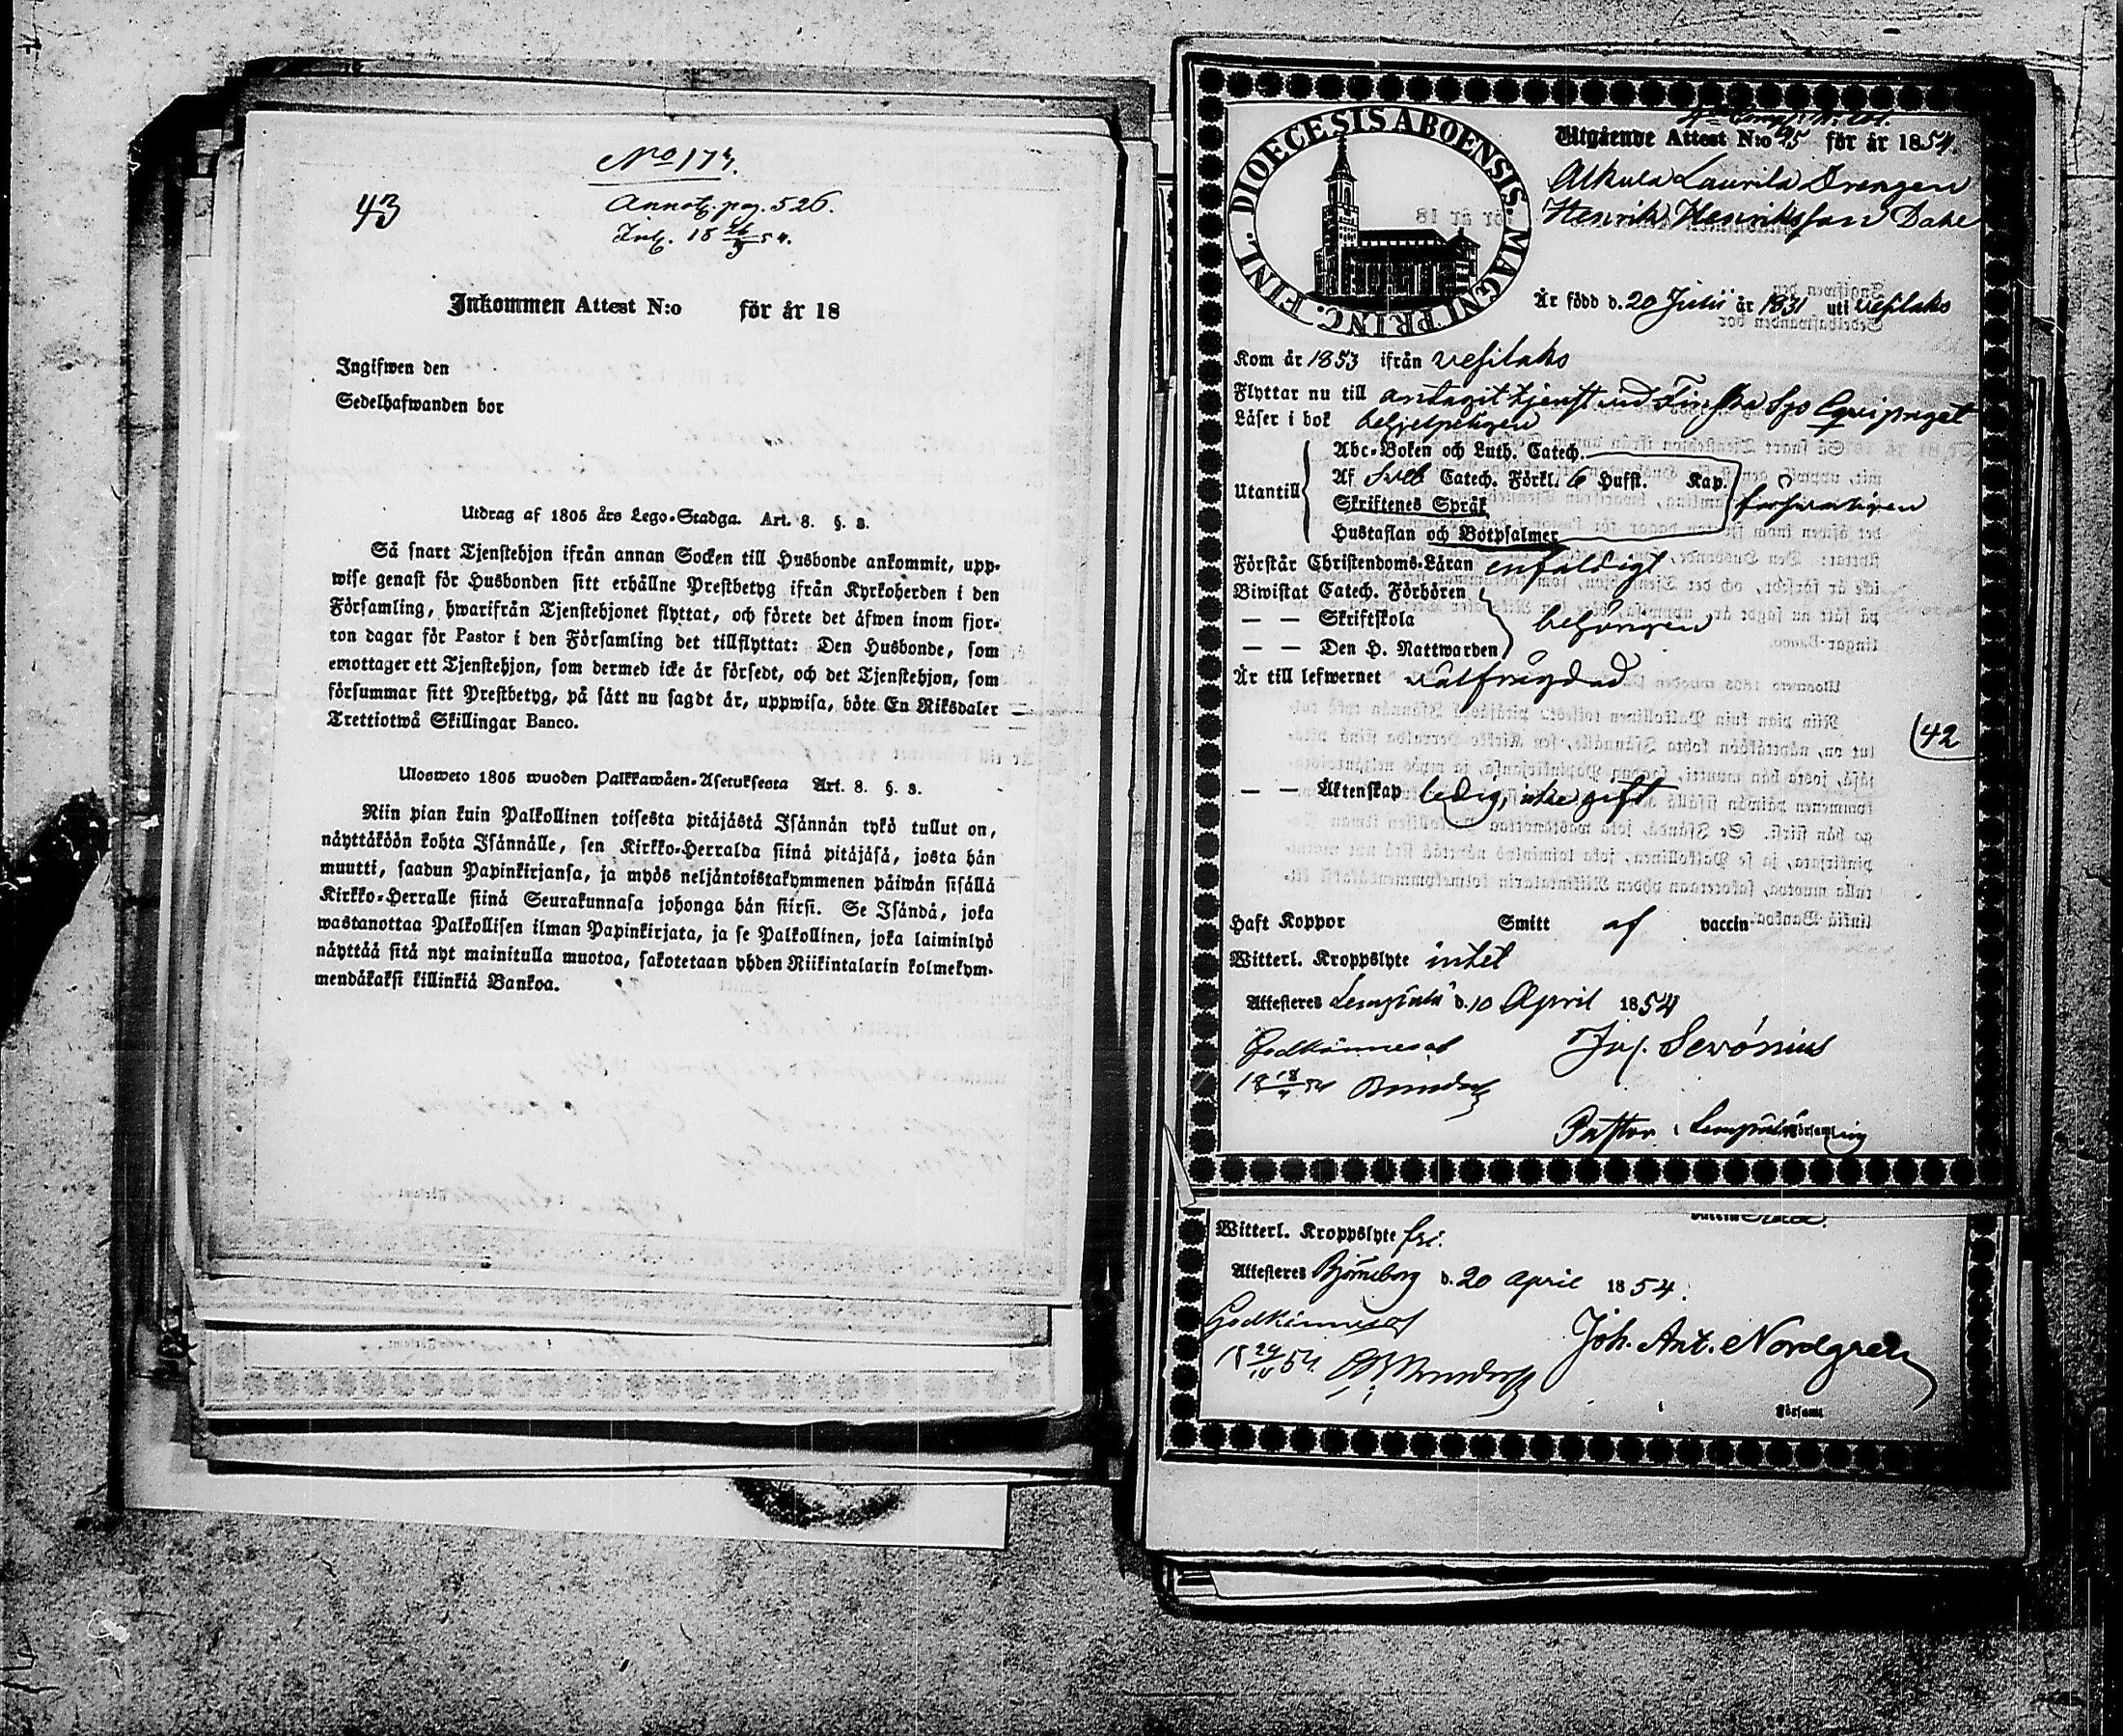 No 174.
43
Annot. pag. 526.
Ink. 18 26/9 54.
Inkommen Attest N:o för år 18
Ingifwen den
Sedelhafwanden bor
Utdrag af 1805 års Lego-Stadga. Art. 8. §. 8.
Så snart Tjenstehjon ifrån annan Socken till Husbonde ankommit, upp-
wise genast för Husbonden sitt erhållne Prestbetyg ifrån Kyrkoherden i den
Församling, hwarifrån Tjenstehjonet flyttat, och förete det äfwen inom fjor-
ton dagar för Pastor i den Församling det tillflyttat: Den Husbonde, som
emottager ett Tjenstehjon, som dermed icke är försedt, och det Tjenstehjon, som
försummar sitt Prestbetyg, på sätt nu sagdt är, uppwisa, böte En Riksdaler
Trettiotwå Skillingar Banco.
Ulosweto 1805 wuoden Palkkawäen-Asetuksesta Art. 8. §. 8.
Niin pian kuin Palkollinen toisesta pitäjästä Isännän tykö tullut on,
näyttäköön kohta Isännälle, sen Kirkko-Herralda siinä pitäjäsä, josta hän
muutti, saadun Papinkirjansa, ja myös neljäntoistakymmenen päiwän sisällä
Kirkko-Herralle siinä Seurakunnasa johonga hän siirsi. Se Isändä, joka
wastanottaa Palkollisen ilman Papinkirjata, ja se Palkollinen, joka laiminlyö
näyttää sitä nyt mainitulla muotoa, sakotetaan yhden Riikintalarin kolmekym-
mendäkaksi killinkiä Bankoa.
DIOECESIS ABOENSIS. MAGNI PRINC. FINL.
Utgående Attest N:o 95 för år 1854.
Alkula Laurila Drengen
Henrik Henriksson Dahl
Är född d. 20 Julii år 1831 uti Vesilaks
Kom år 1853 ifrån Vesilaks
Flyttar nu till antagit tjenst vid Finska Sjö Equipaget
Läser i bok
Abc-Boken och Luth. Catech.
Utantill Af Sveb Catech. Förkl. 6 Hufst. Kap.
Skriftenes Språk
Hustaflan och Botpsalmer
Förstår Christendoms-Läran enfaldigt
Biwistat Catech. Förhören
— — Skriftskola behörigen
— — Den H. Nattwarden
Är till lefwernet välfrägdad
42
— — Äktenskap ledig, icke gift
Haft Koppor Smitt af vaccin
Witterl. Kroppslyte intet
Attesteres Lempäälä d. 10 April 1854
Godkännes af Jos. Serónius
18 18/4 54
Pastor i Lempäälä Församling
Witterl. Kroppslyte fri.
Attesteres Björneborg d. 20 April 1854.
Godkännes af
Joh. Ant. Nordgren
18 24/IV 54.
Församl